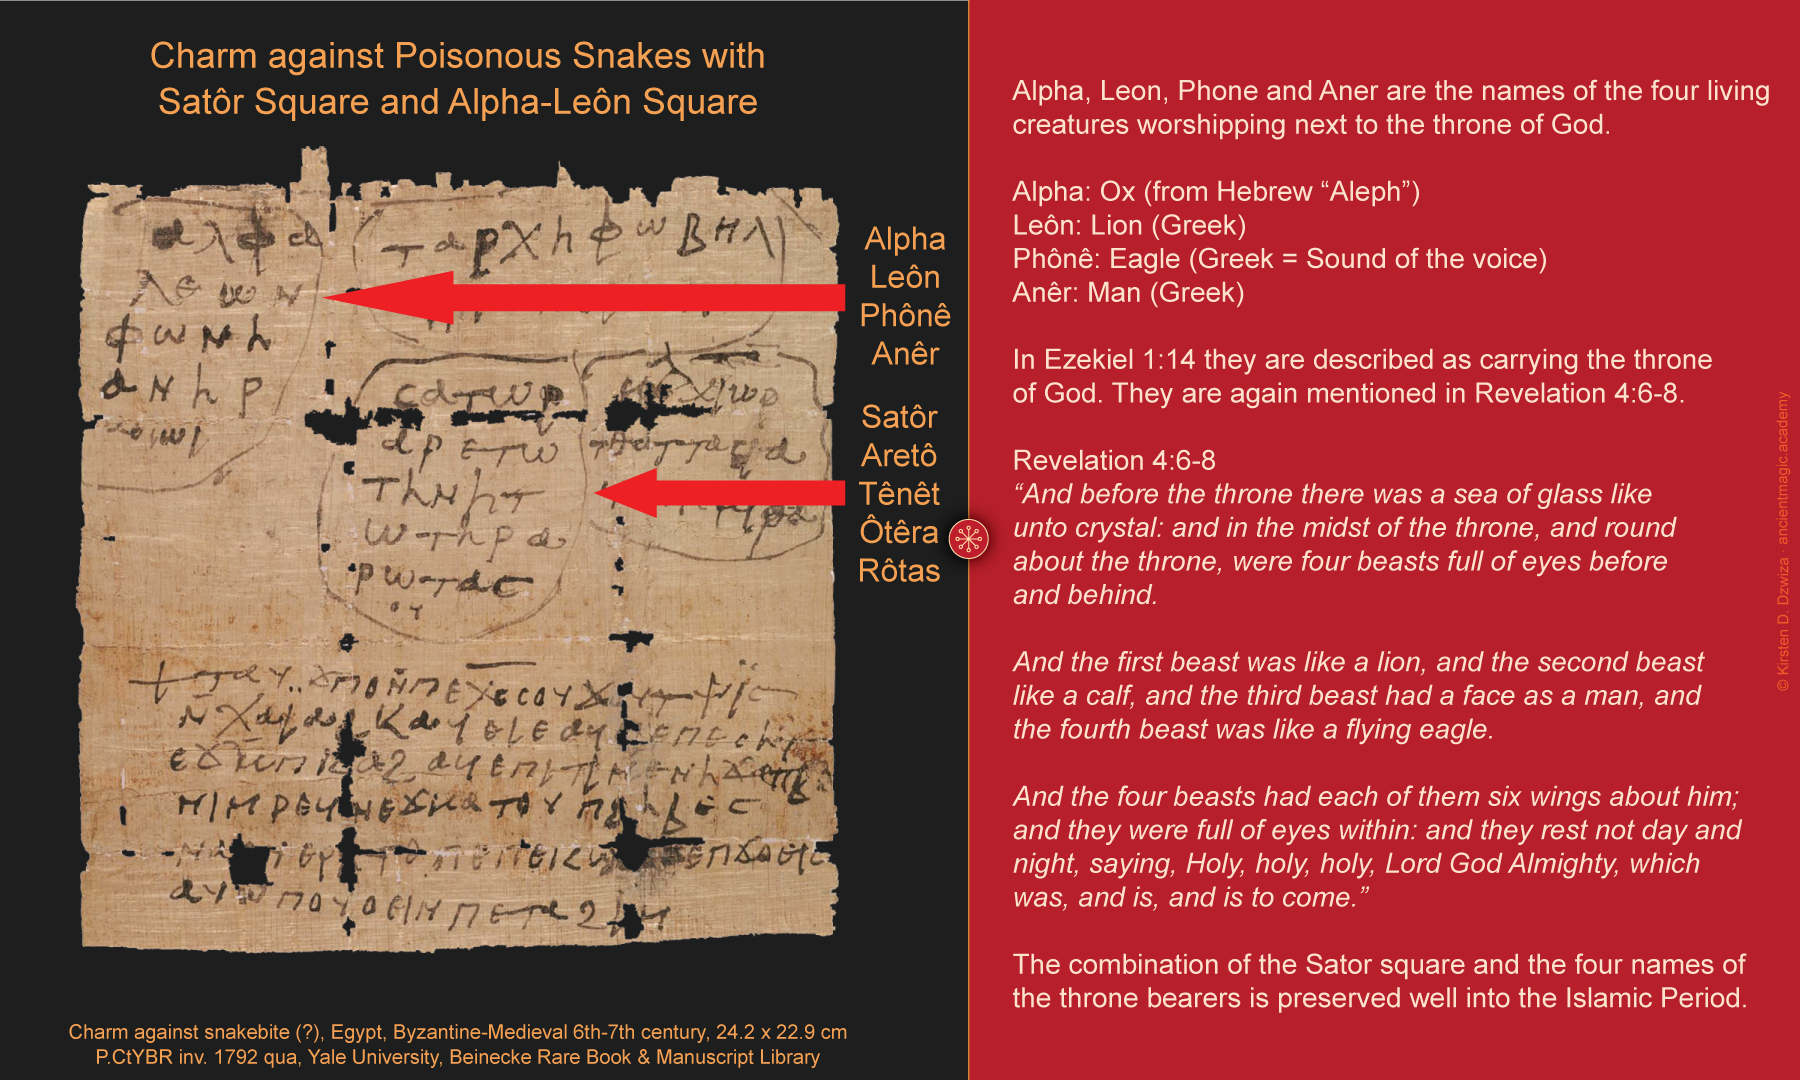 Charm against Poisonous Snakes with
Satôr Square and Alpha-Leôn Square
ⲁⲗⲫⲁ
ⲗⲉⲱⲛ
ⲫⲱⲛⲏ
ⲁⲛⲏⲣ
ⲥⲁⲧⲱⲣ
ⲁⲣⲉⲧⲱ
ⲧⲏⲛⲏⲧ
ⲱⲧⲏⲣⲁ
ⲣⲱⲧⲁⲥ
Alpha
Leôn
Phônê
Anêr
Satôr
Aretô
Tênêt
Ôtêra
Rôtas
Charm against snakebite (?), Egypt, Byzantine-Medieval 6th-7th century, 24.2 x 22.9 cm
P.CtYBR inv. 1792 qua, Yale University, Beinecke Rare Book & Manuscript Library
Alpha, Leon, Phone and Aner are the names of the four living
creatures worshipping next to the throne of God.
Alpha: Ox (from Hebrew “Aleph”)
Leôn: Lion (Greek)
Phônê: Eagle (Greek = Sound of the voice)
Anêr: Man (Greek)
In Ezekiel 1:14 they are described as carrying the throne
of God. They are again mentioned in Revelation 4:6-8.
Revelation 4:6-8
“And before the throne there was a sea of glass like
unto crystal: and in the midst of the throne, and round
about the throne, were four beasts full of eyes before
and behind.
And the first beast was like a lion, and the second beast
like a calf, and the third beast had a face as a man, and
the fourth beast was like a flying eagle.
And the four beasts had each of them six wings about him;
and they were full of eyes within: and they rest not day and
night, saying, Holy, holy, holy, Lord God Almighty, which
was, and is, and is to come.”
The combination of the Sator square and the four names of
the throne bearers is preserved well into the Islamic Period.
© Kirsten D. Dzwiza · ancientmagic.academy